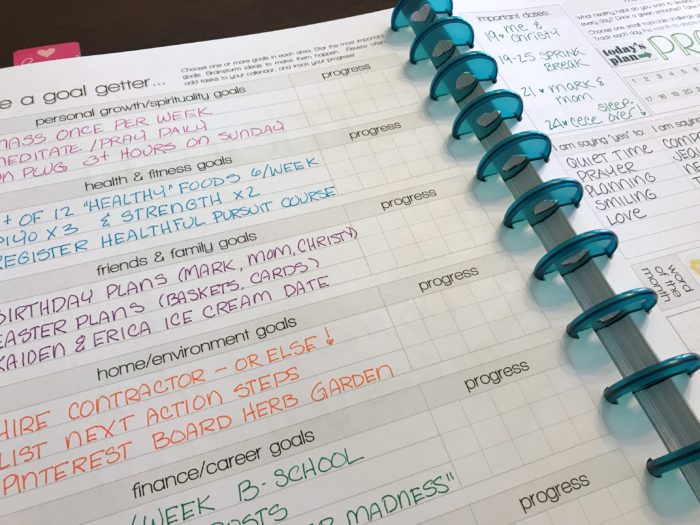 e a goal getter...
Choose one or more goals in each area. Star the most important
goals. Brainstorm ideas to make them happen. Review
add tasks to your calendar, and track your progress!
personal growth/spirituality goals
progress
MASS ONCE PER WEEK
MEDITATE / PRAY DAILY
UNPLUG 3+ HOURS ON SUNDAY
health & fitness goals
progress
+ OF 12 "HEALTHY" FOODS 6/WEEK
X3 & STRENGTH X2
REGISTER HEALTHFUL PURSUIT COURSE
friends & family goals
progress
BIRTHDAY PLANS (MARK, MOM, CHRISTY)
EASTER PLANS (BASKETS, CARDS)
KAIDEN & ERICA ICE CREAM DATE
home/environment goals
progress
HIRE CONTRACTOR - OR ELSE!
LIST NEXT ACTION STEPS
PINTEREST BOARD HERB GARDEN
finance/career goals
progress
/WEEK B-SCHOOL
POSTS
MADNESS"
progress
important dates:
19 ♥ me & christy
19-25 SPRING BREAK
21 ♥ MARK & MOM
24 ♥ cece sleep-over!
What healthy habit do you want to develop
today's plan
1 2 3 4
17 18 19 20
I am saying 'yes' to:
QUIET TIME
PRAYER
PLANNING
SMILING
LOVE
I am saying
word of the month